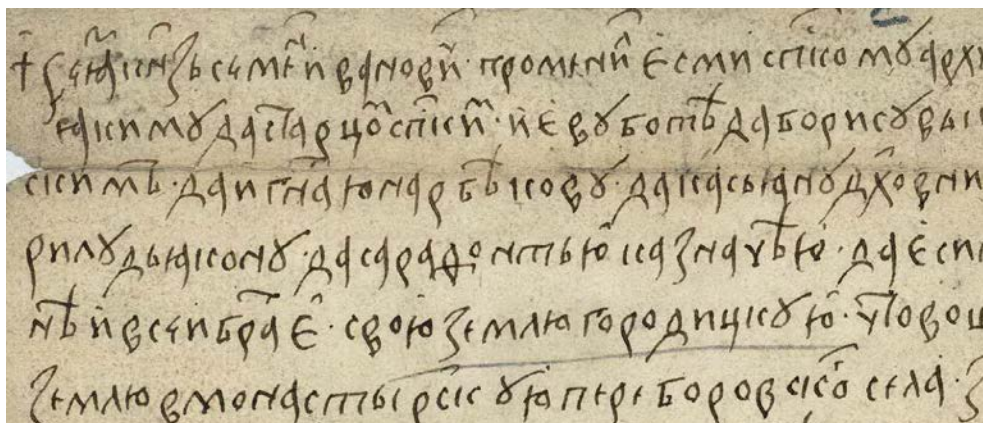 † се ꙗз кнзь семен иванови промени есми спскому архи
ꙗкиму да старцо спски иеву ботѣ да борису вы
ским да игнаю нарбѣкову да касьꙗну дховни
рилу дьꙗкону да сарадонтью казначѣю да еси
нѣ и всеи бра е свою землю городицкую что вош
землю в монастырскую переборовско села з